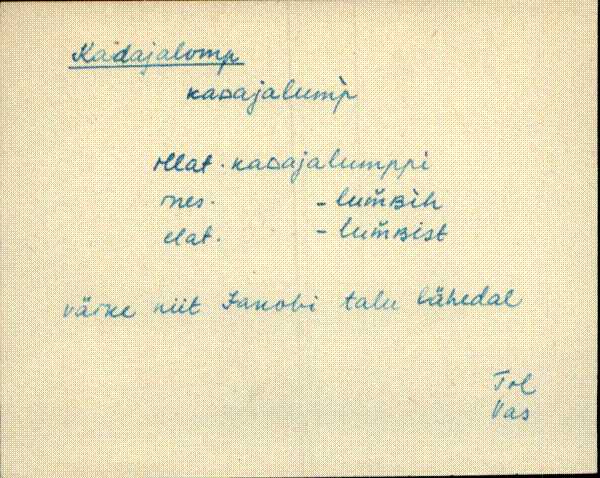 Kadajalomp
kaᴅajalum̀p
illat. kaᴅajalumppi
ines. - lum̆ʙìh
elat. - lum̆ʙist
väike niit Jakobi talu lähedal
Tol
Vas